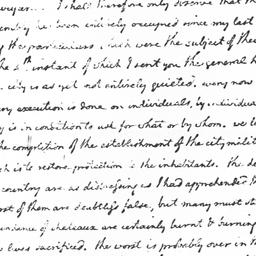 I shall therefore only observe that th
been entirely occupied since my last
the particulars, which were the subject of the
he 5th instant of which I sent you the general h
city is as yet not entirely quieted. every now
ry execution is done on individuals, by individua
y is in condition to ask for what or by whom. we l
the completion of the establishment of the city milit
ch is to restore protection to the inhabitants. the de
country are as distressing as I had apprehended th
ost of them are doubtless false, but many must st
undance of chateaux are certainly burnt & burning
lives sacrificed. the worst is probably over in th